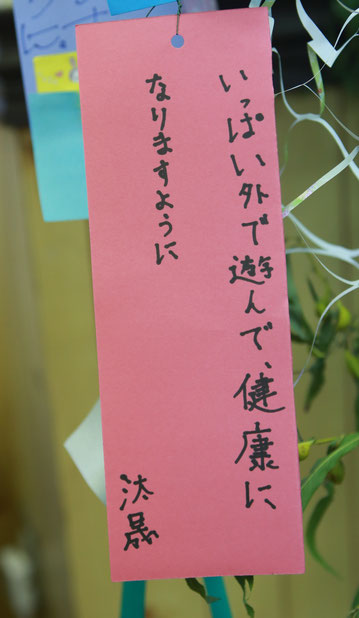 いっぱい外で遊んで、健康に
なりますように
汰晟